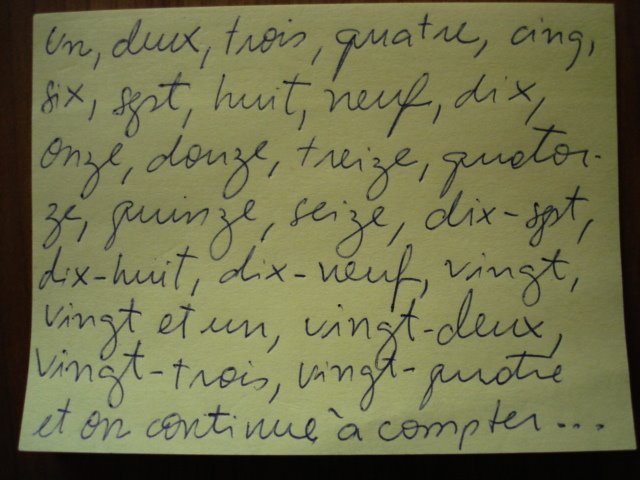 un, deux, trois, quatre, cinq,
six, sept, huit, neuf, dix,
onze, douze, treize, quator-
ze, quinze, seize, dix-sept,
dix-huit, dix-neuf, vingt,
vingt et un, vingt-deux,
vingt-trois, vingt-quatre
et on continue à compter...